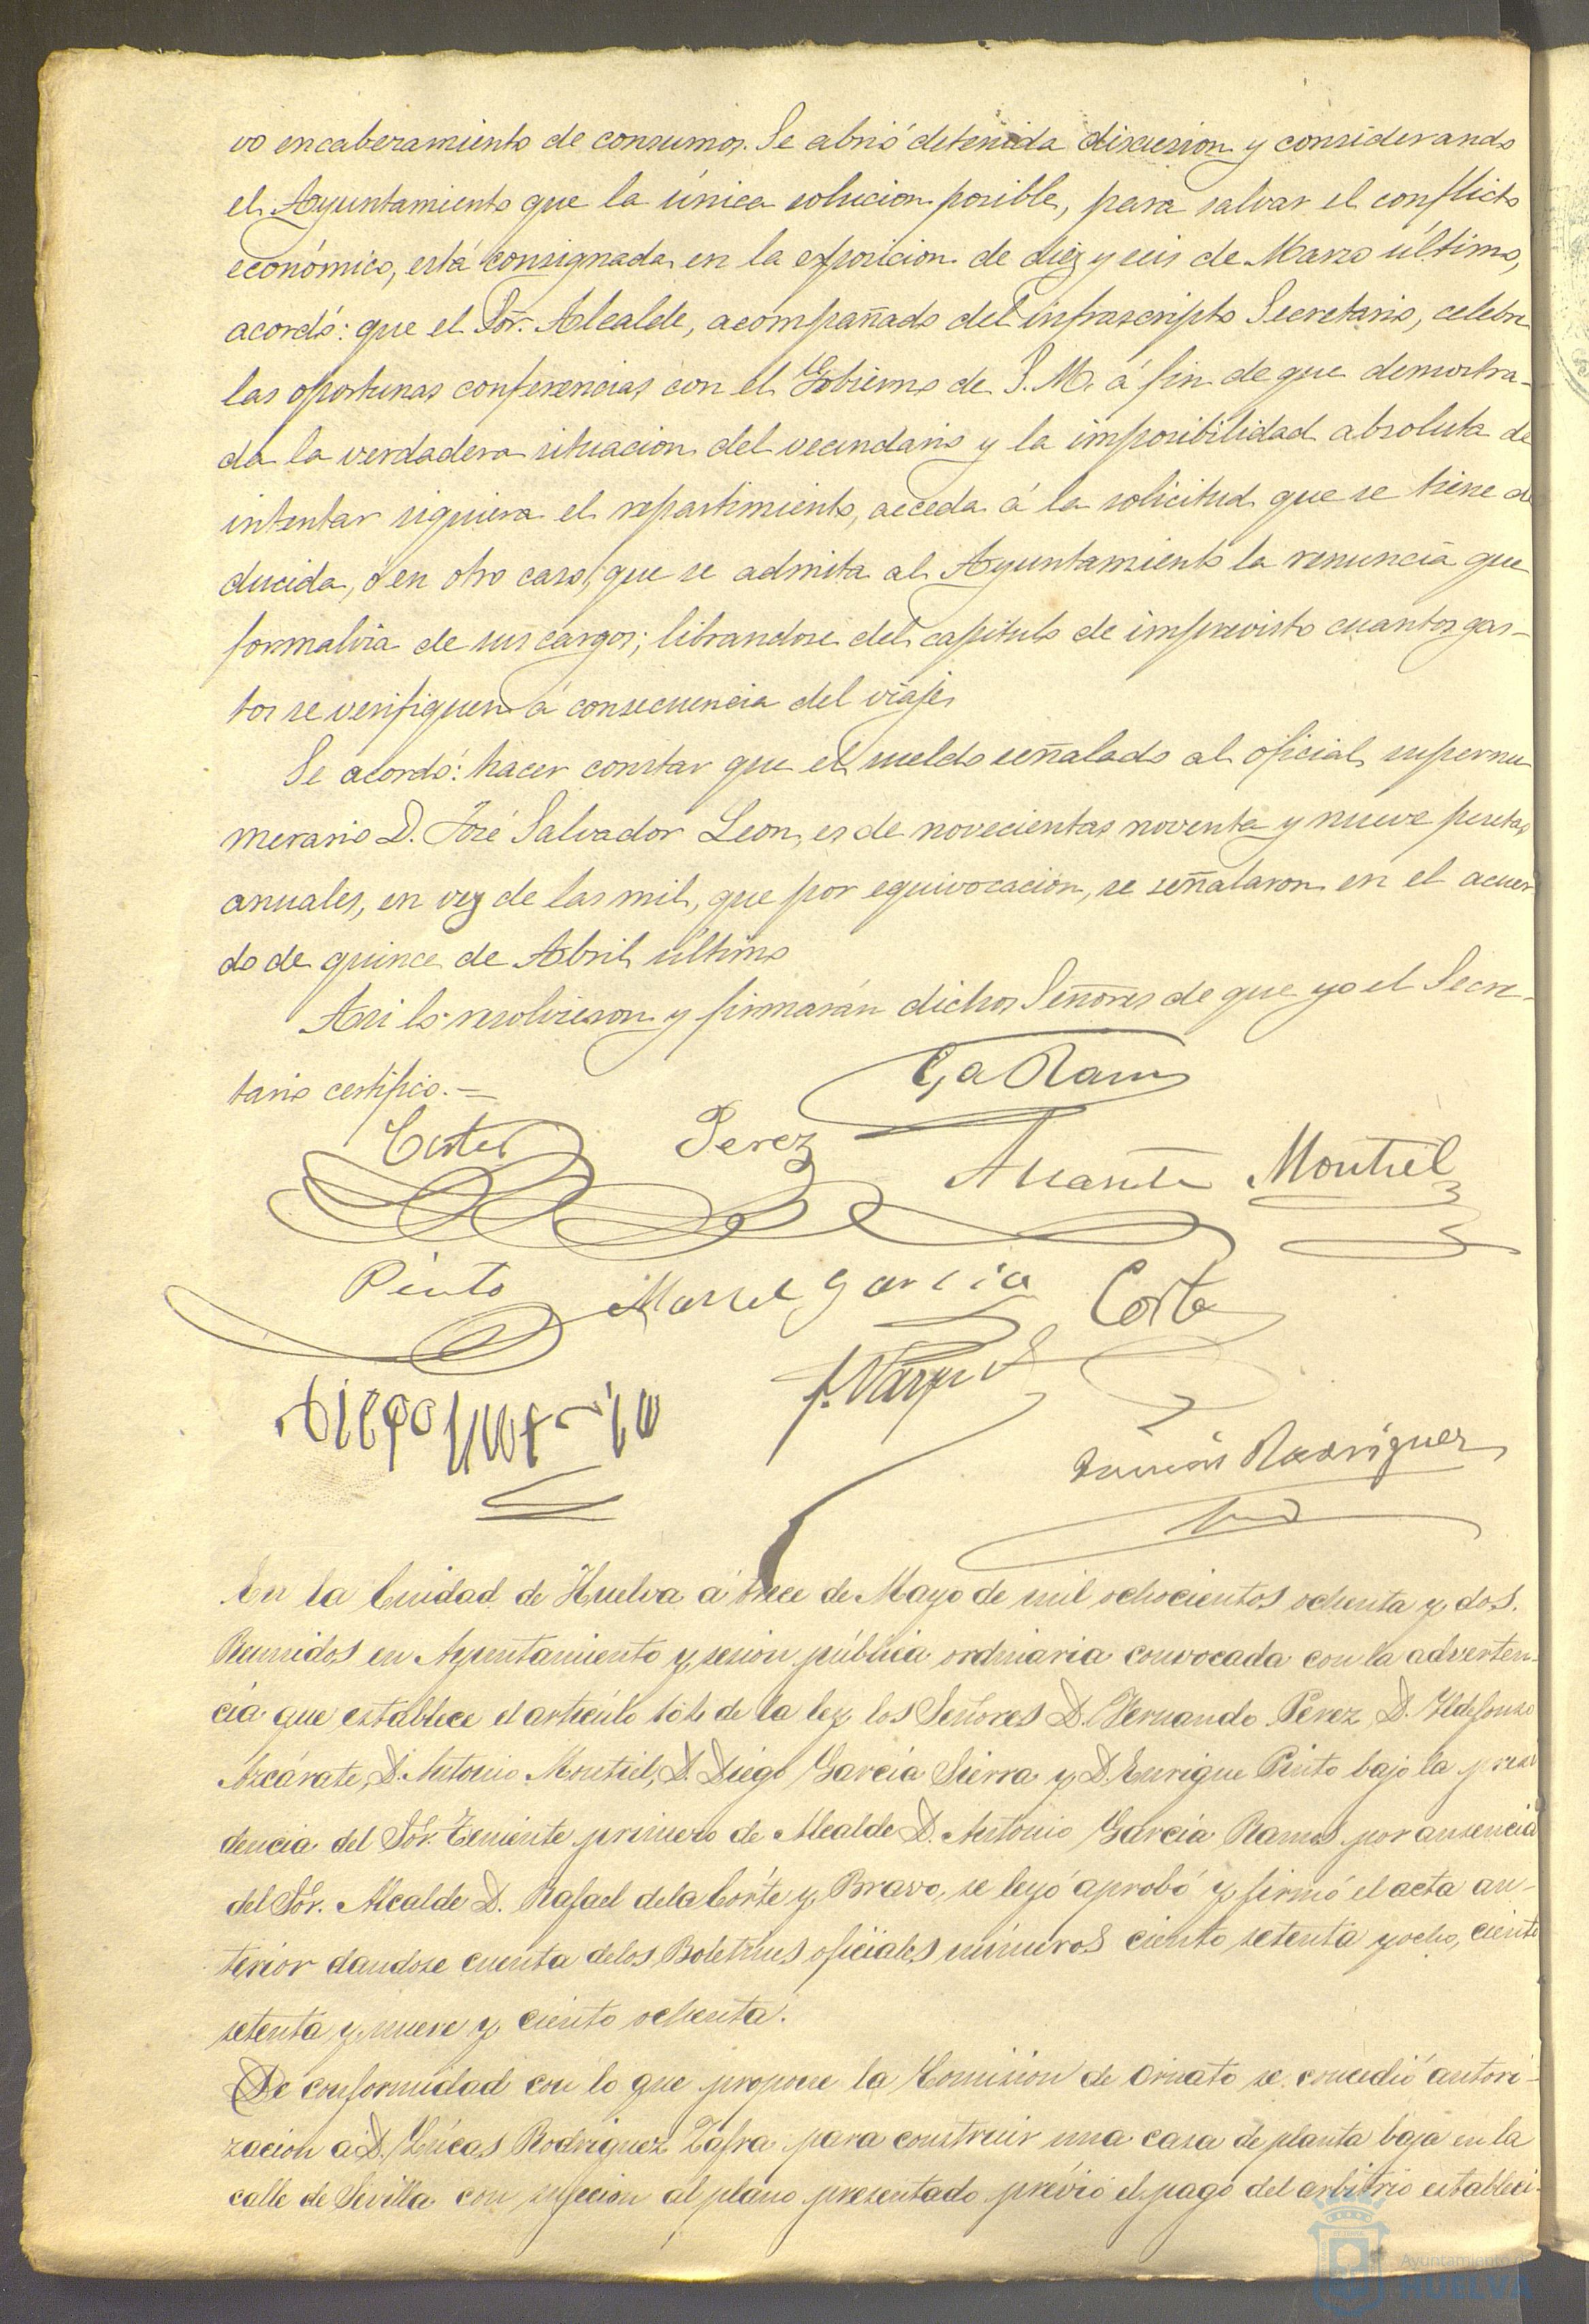 vo encabezamiento de consumos. Se abrió detenida discusion y considerando
el Ayuntamiento que la única solucion posible, para salvar el conflicto
económico, está consignada en la exposicion de diez y seis de Marzo último,
acordó: que el Sor. Alcalde, acompañado del infrascripto Secretario, celebre
las oportunas conferencias con el Gobierno de S. M. á fin de que demostra-
da la verdadera situacion del vecindario y la imposibilidad absoluta de
intentar siquiera el repartimiento, acceda á la solicitud que se tiene de
ducida, ó en otro caso, que se admita al Ayuntamiento la renuncia que
formaliza de sus cargos; librandose del capitulo de imprevisto cuantos gas-
tos se verifiquen á consecuencia del viaje
Se acordó: hacer constar que el sueldo señalado al oficial supernu
merario D. José Salvador Leon, es de novecientas noventa y nueve pesetas
anuales, en vez de las mil, que por equivocacion, se señalaron en el acuer
do de quince de Abril último
Asi lo resolvieron y firmarán dichos Señores de que yo el Secre-
tario certifico.=
Ga Ramos
Perez
Montiel
Pinto Garcia Corte
F. Vazquez
Rodriguez
En la Ciudad de Huelva á trece de Mayo de mil ochocientos ochenta y dos.
Reunidos en Ayuntamiento y sesion pública ordinaria convocada con la adverten-
cia que establece el articulo 104 de la ley los Señores D. Hernando Perez, D. Ildefonso
Azcárate, D. Antonio Montiel, D. Diego Garcia Sierra y D. Enrique Pinto bajo la presi
dencia del Sór. Teniente primero de Alcalde D. Antonio Garcia Ramos por ausencia
del Sór. Alcalde D. Rafael dela Corte y Bravo, se leyó aprobó y firmó el acta an-
terior dandose cuenta delos Boletines oficiales números ciento setenta y ocho, ciento
setenta y nueve y ciento ochenta.
De conformidad con lo que propone la Comision de Ornato se concedió autori-
zacion a D. Lúcas Rodriguez Zafra para construir una casa de planta baja en la
calle de Sevilla con sujecion al plano presentado prévio el pago del arbitrio estableci-
Ayuntamiento de
HUELVA